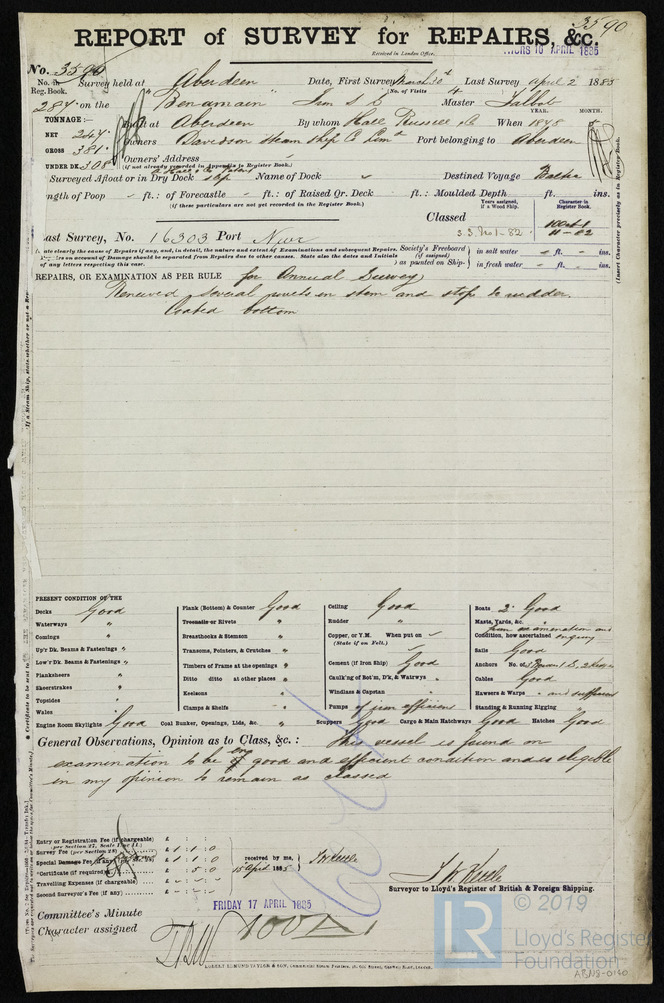 3590
REPORT of SURVEY for REPAIRS, &c.
Received in London Office. THURS 16 APRIL 1885
No. 3590
No. in Reg. Book. Survey held at Aberdeen Date, First Survey March 30th Last Survey April 2 1885
(No. of Visits 4
287 on the "Benamain" Iron S S Master Talbot
TONNAGE:— YEAR. MONTH.
NET 247 Built at Aberdeen By whom Hall Russell & Co When 1878
GROSS 381 Owners Davidson Steam Ship Co Limd Port belonging to Aberdeen
UNDER DK. 308 Owners' Address
(if not already recorded in Appendix to Register Book.)
Surveyed Afloat or in Dry Dock slip Name of Dock Destined Voyage
Length of Poop - ft.: of Forecastle - ft.: of Raised Qr. Deck ft.: Moulded Depth ft. ins.
(if these particulars are not yet recorded in the Register Book.)
Years assigned, if a Wood Ship. Character in Register Book.
Classed S.S. No 1-82 100A1
11-82
Last Survey, No. 16303 Port Nwc
Society's Freeboard (if assigned) as painted on Ship- in salt water - ft. - ins.
in fresh water - ft. - ins.
(Insert Character precisely as in Register Book.
REPAIRS, OR EXAMINATION AS PER RULE for Annual Survey
Renewed several rivets in stem and stop to rudder.
Coated bottom
PRESENT CONDITION OF THE
Decks Good
Waterways "
Comings "
Up'r Dk. Beams & Fastenings "
Low'r Dk. Beams & Fastenings "
Planksheers "
Sheerstrakes "
Topsides "
Wales "
Engine Room Skylights Good
Plank (Bottom) & Counter Good
Treenails or Rivets "
Breasthooks & Stemson "
Transoms, Pointers, & Crutches "
Timbers of Frame at the openings "
Ditto ditto at other places "
Keelsons "
Clamps & Shelfs "
Coal Bunker, Openings, Lids, &c. "
Ceiling Good
Rudder "
Copper, or Y.M. When put on
(State if on Felt.)
Cement (if Iron Ship) Good
Caulk'ng of Bot'm, D'k, & Watrw'ys "
Windlass & Capstan "
Pumps of iron efficient
Scuppers Good Cargo & Main Hatchways Good Hatches Good
Boats 2 Good
Masts, Yards, &c. "
Condition, how ascertained from examination and enquiry
Sails Good
Anchors No. of 3 Bower 1 S, 2 Kedge
Cables Good
Hawsers & Warps " and sufficient
Standing & Running Rigging "
General Observations, Opinion as to Class, &c.: This vessel is found on
examination to be in good and efficient condition and is eligible
in my opinion to remain as classed
Entry or Registration Fee (if chargeable) £ : :
(per Section 27, Scale 1 or 11.)
Survey Fee (per Section 28) £ 1 : 1 : 0
Special Damage Fee £ 1 : 1 : 0
*Certificate (if required) £ : 5 : 0
Travelling Expenses (if chargeable) £
Second Surveyor's Fee (if any) £
received by me,
15 April 1885
Surveyor to Lloyd's Register of British & Foreign Shipping.
Committee's Minute FRIDAY 17 APRIL 1885
Character assigned 100A1
© 2019
LR Lloyd's Register
Foundation
ABN8-0160